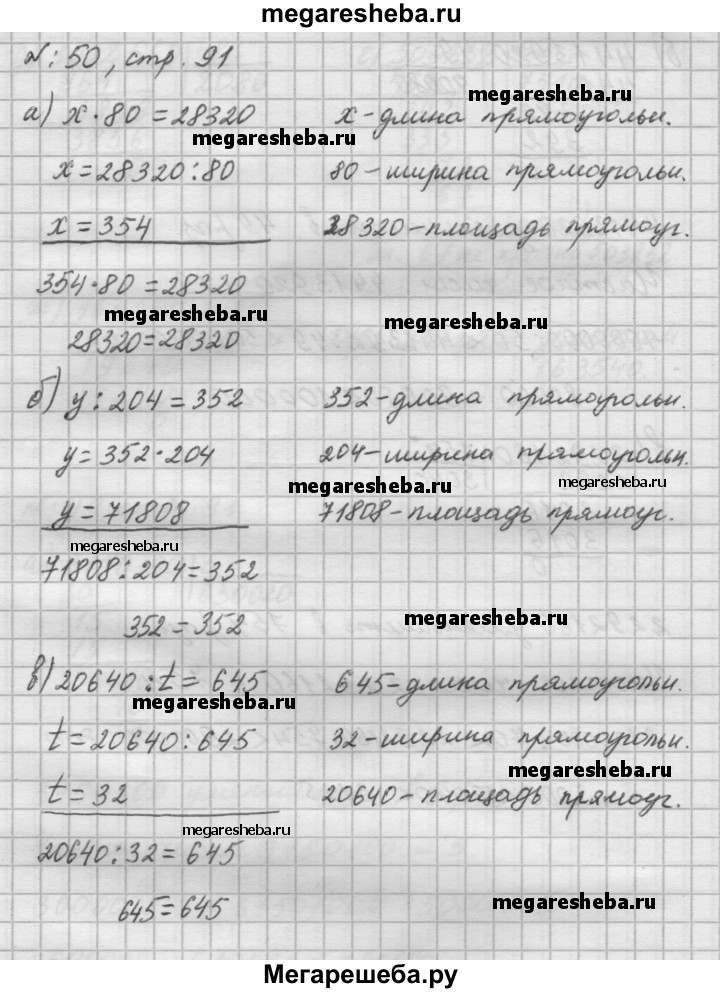 megaresheba.ru
№: 50, стр. 91
megaresheba.ru
а) x · 80 = 28320 x - длина прямоугольн.
megaresheba.ru
x = 28320 : 80 80 - ширина прямоугольн.
x = 354 28320 - площадь прямоуг.
354 · 80 = 28320
megaresheba.ru megaresheba.ru
28320 = 28320
б) y : 204 = 352 352 - длина прямоугольн.
y = 352 · 204 204 - ширина прямоугольн.
megaresheba.ru
y = 71808 71808 - площадь прямоуг.
megaresheba.ru
71808 : 204 = 352
352 = 352 megaresheba.ru
в) 20640 : t = 645 645 - длина прямоугольн.
megaresheba.ru
t = 20640 : 645 32 - ширина прямоугольн.
megaresheba.ru
t = 32 20640 - площадь прямоуг.
megaresheba.ru
20640 : 32 = 645
645 = 645 megaresheba.ru
Мегарешеба.ру